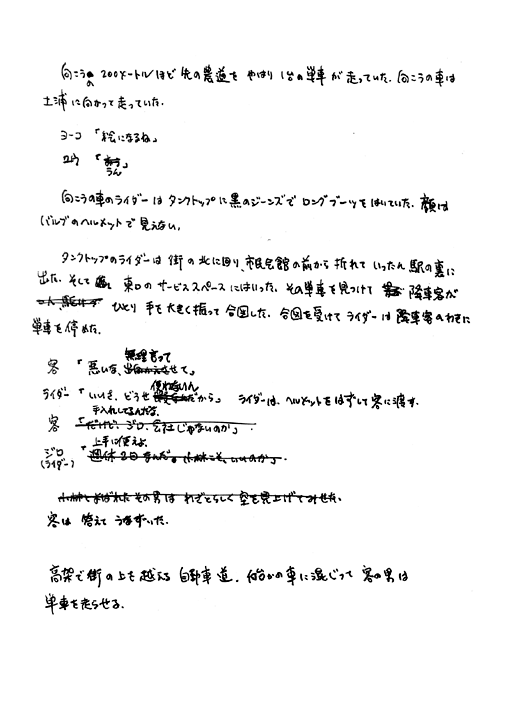 向こうの200メートルほど先の農道を やはり 1台の単車が走っていた。向こうの車は
土浦に向かって走っていた。
ヨーコ 「絵になるね」
ユウ 「うん」
向こうの車のライダーはタンクトップに黒のジーンズでロングブーツをはいていた。顔は
バルブのヘルメットで見えない。
タンクトップのライダーは街の北に回り、市民会館の前から折れていったん駅の裏に
出た。そして 東口のサービススペースにはいった。その単車を見つけて 降車客が
ひとり 手を大きく振って合図した。合図を受けてライダーは降車客のわきに
単車を停めた。
無理言って
客 「悪いな、出向かえさせて」
使わないん
ライダー 「いいさ。どうせ だから」 ライダーは、ヘルメットをはずして客に渡す。
手入れしてんだな。
客 「だけど、ジロ、会社じゃないのか」.
上手に使えよ
ジロ 「週休2日なんだ。小林こそ、いいのか」.
(ライダー)
小林とよばれたその男は わざとらしく空を見上げてみせた。
客は 答えて うなずいた.
高架で街の上を越える 自動車道. 何台かの車に混じって 客の男は
単車を走らせる.